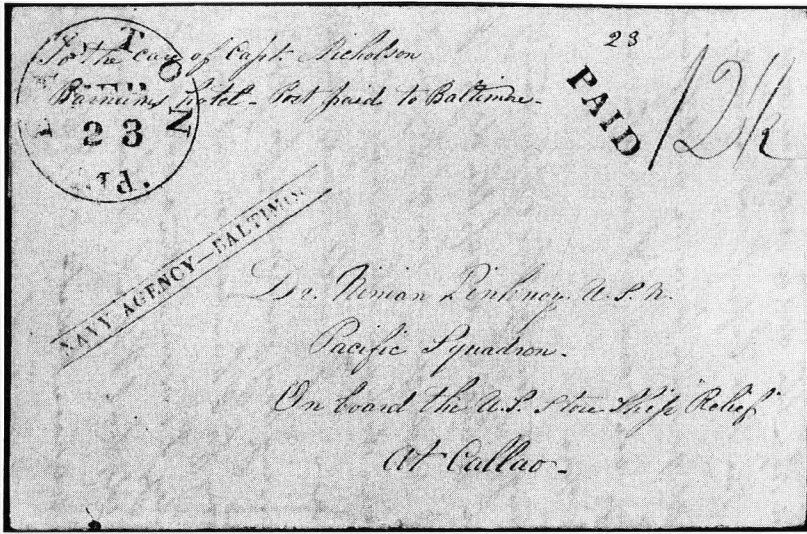 To the care of Capt. Nicholson
Barnums Hotel - Post paid to Baltimore -
23
23
PAID
12½
NAVY AGENCY—BALTIMO
Dr. Ninian Pinkney U.S.N.
Pacific Squadron -
On board the U.S. Store Ship Relief
At Callao -